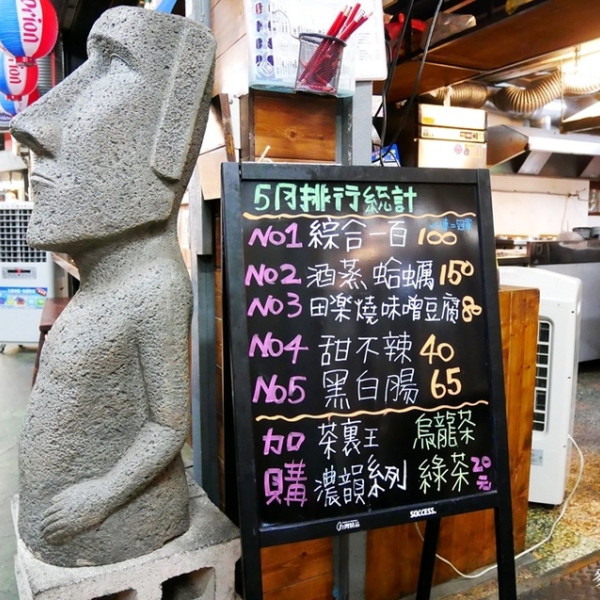 5月排行統計
NO1 綜合一百 100
NO2 酒蒸蛤蠣 150
NO3 田楽燒味噌豆腐 80
NO4 甜不辣 40
NO5 黑白腸 65
加購
茶裏王 烏龍茶
濃韻系列 綠茶 20元
SUCCESS.